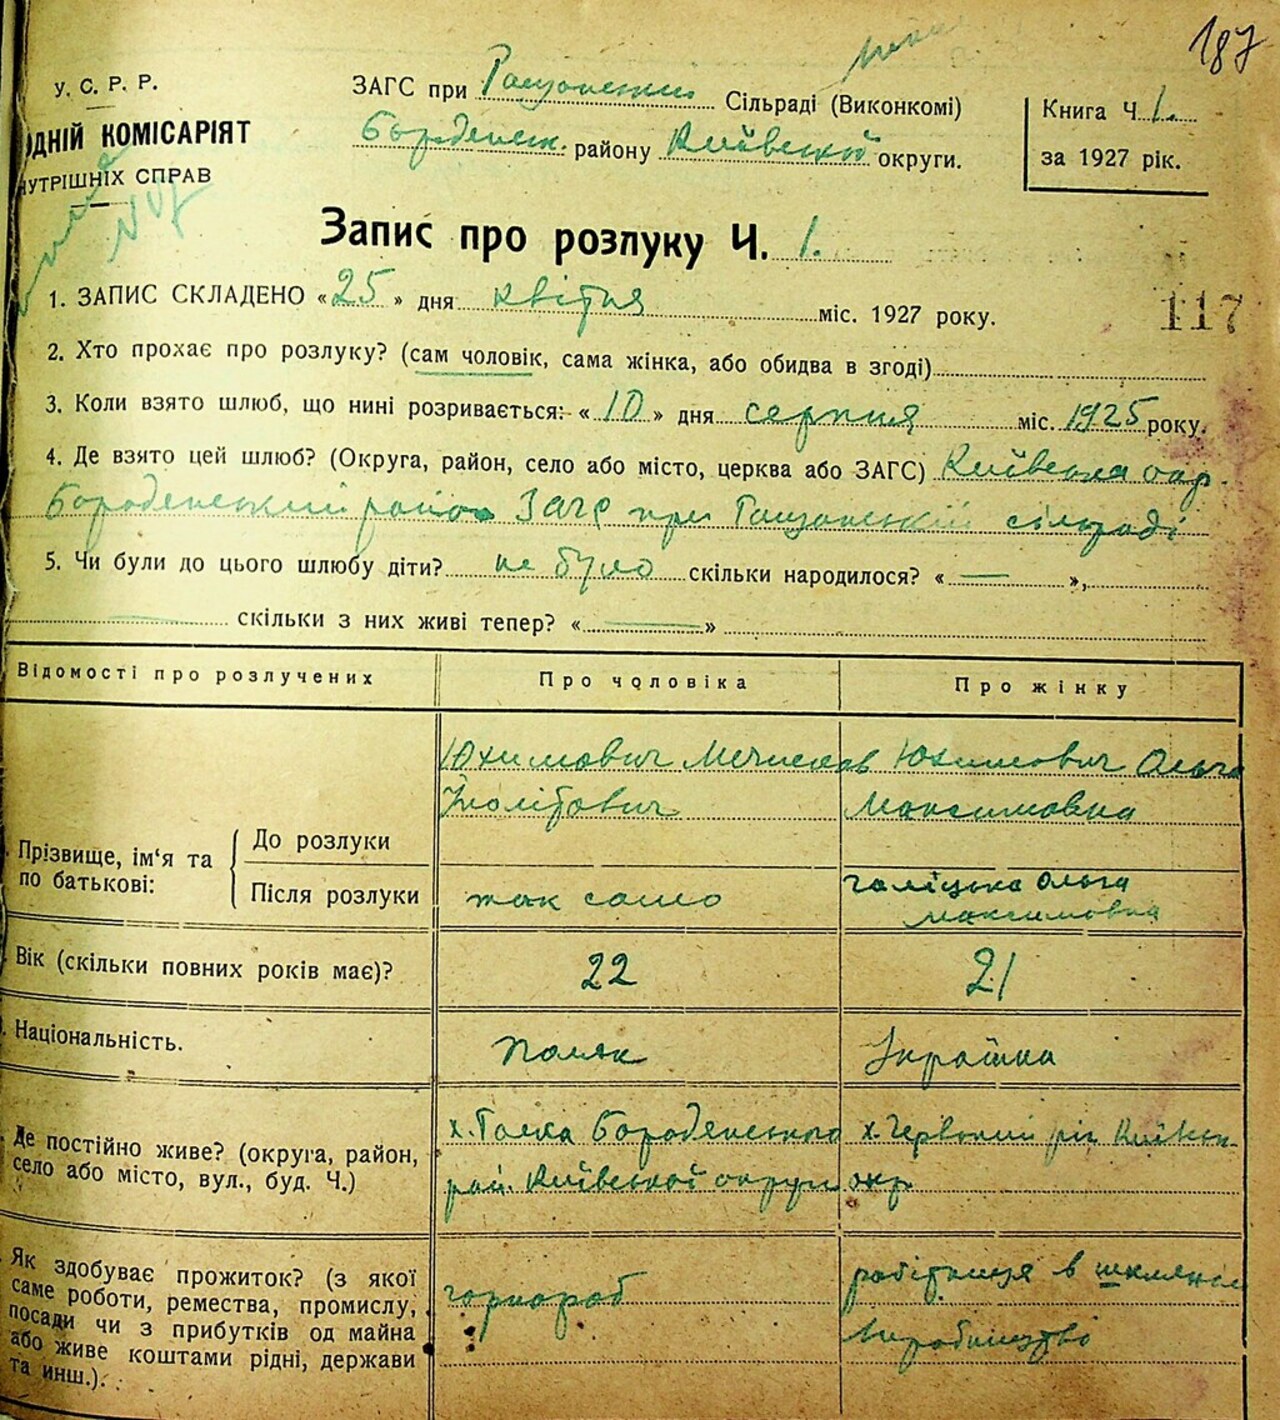 187
У. С. Р. Р.
ОДНІЙ КОМІСАРІЯТ
НУТРІШНІХ СПРАВ
ЗАГС при Сільраді (Виконкомі)
Бородянск. району Київської округи.
Книга Ч. 1.
за 1927 рік.
Запис про розлуку Ч. 1.
117
1. ЗАПИС СКЛАДЕНО «25» дня квітня міс. 1927 року.
2. Хто прохає про розлуку? (сам чоловік, сама жінка, або обидва в згоді)
3. Коли взято шлюб, що нині розривається: «10» дня серпня міс. 1925 року.
4. Де взято цей шлюб? (Округа, район, село або місто, церква або ЗАГС) Київська окр.
Бородянський район Загс при сільраді
5. Чи були до цього шлюбу діти? не було скільки народилося? « — »,
— скільки з них живі тепер? « — »
Відомості про розлучених
Про чоловіка
Про жінку
Прізвище, ім'я та по батькові:
До розлуки
Юхимович Мечислав
Іполітович
Юхимович Ольга
Максимовна
Після розлуки
так само
Галіцька Ольга
Максимовна
Вік (скільки повних років має)?
22
21
Національність.
Поляк
Українка
Де постійно живе? (округа, район,
село або місто, вул., буд. Ч.)
х. Галка Бородянського
рай. Київської округи
х. Червоний ріг Київськ.
окр.
Як здобуває прожиток? (з якої
саме роботи, ремества, промислу,
посади чи з прибутків од майна
або живе коштами рідні, держави
та инш.).
робітниця в
виробництві